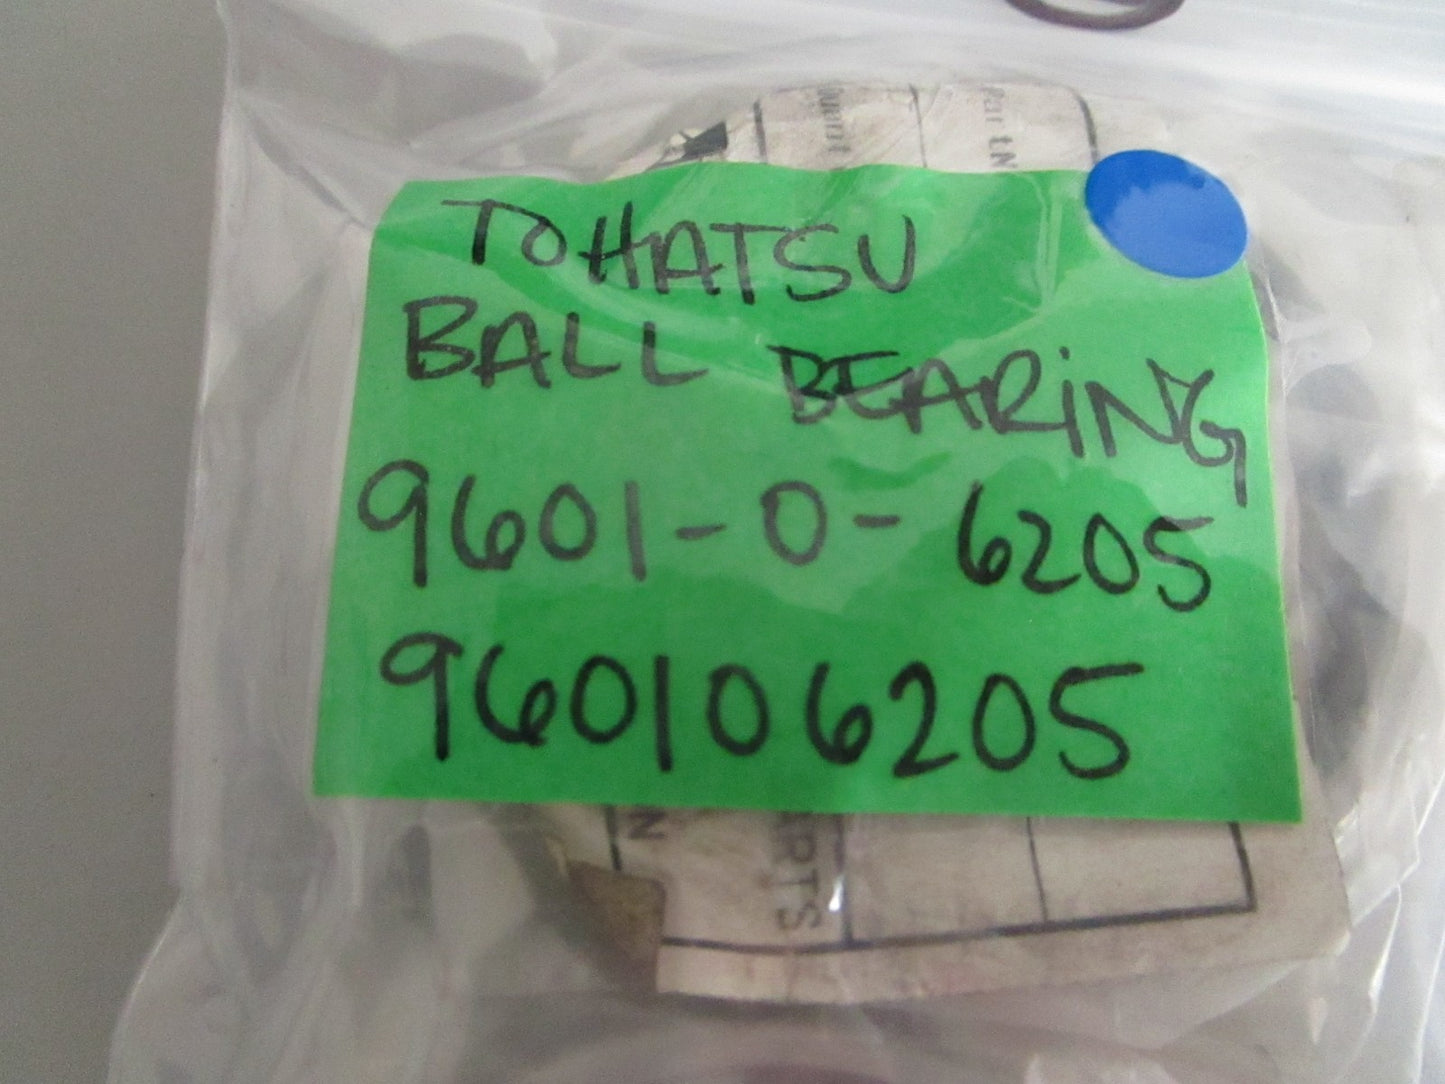 Part N
TOHATSU
BALL BEARING
9601-0-6205
960106205
N
RTS